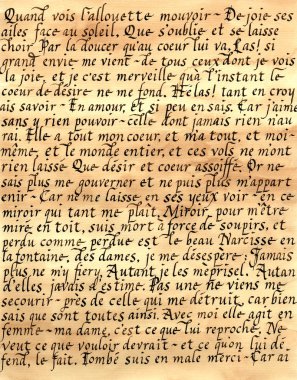 Quand vois l'allouette mouvoir - De joie ses
ailes face au soleil, Que s'oublie et se laisse
choir Par la doucer qu'au coeur lui va, Las! si
grand envie me vient - de tous ceux dont je vois
la joie, et je c'est merveille qu'a l'instant le
coeur de désire ne me fond. Helas! tant en croy
ais savoir - En amour, et si peu en sais. Car j'aime
sans y rien pouvoir - celle dont jamais rien n'au
rai. Elle a tout mon coeur, et m'a tout, et moi-
même, et le monde entier, et ces vols ne m'ont
rien laisse Que désir et coeur assoiffé. Or ne
sais plus me gouverner et ne puis plus m'appart
enir - Car ne me laisse, en ses yeux voir - en ce
miroir qui tant me plait. Miroir, pour m'être
miré en toit, suis mort à force de soupirs, et
perdu comme perdue est le beau Narcisse en
la fontaine, des dames, je me désespère; Jamais
plus ne m'y fiery, Autant je les meprisel. Autan
d'elles javais d'estime. Pas une ne viens me
secourir - près de celle qui me détruit, car bien
sais que sont toutes ainsi. Avec moi elle agit en
femme - ma dame, c'est ce que lui reproche, Ne
veut ce que vouloir devrait - et ce qu'on lui dé
fend, le fait. Tombé suis en male merci - Car ai